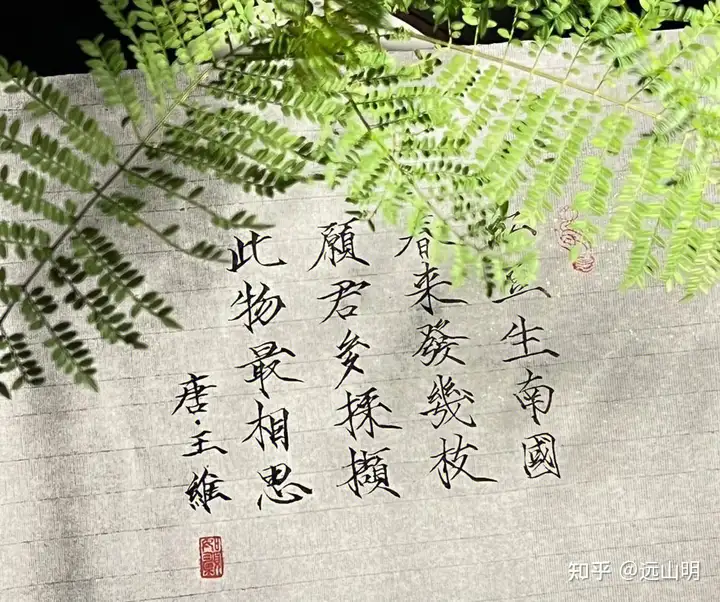 豆生南國
春来發幾枝
願君多採擷
此物最相思
唐·王維
知乎 @远山明